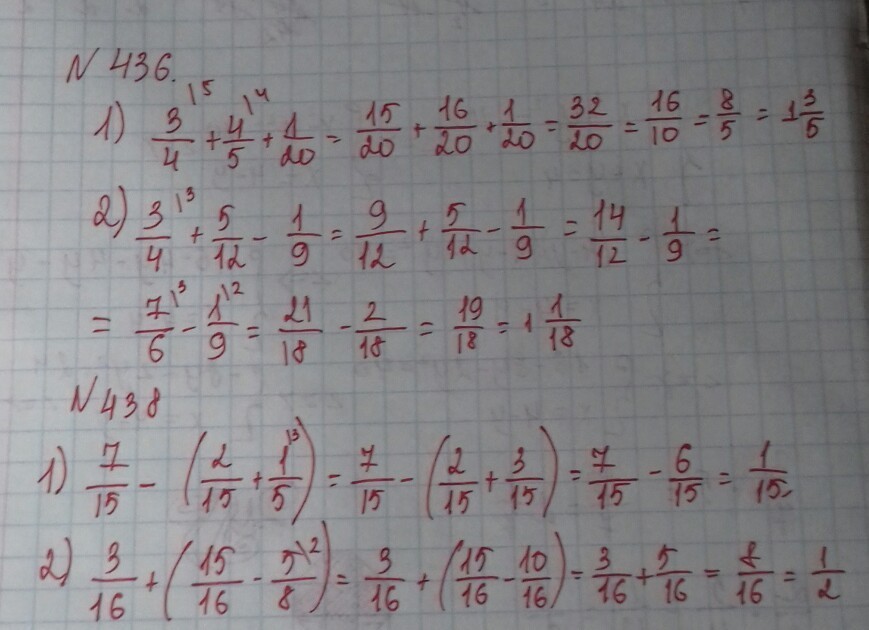 N 436.
1) 3/4\5 + 4/5\4 + 1/20 = 15/20 + 16/20 + 1/20 = 32/20 = 16/10 = 8/5 = 1 3/5
2) 3/4\3 + 5/12 - 1/9 = 9/12 + 5/12 - 1/9 = 14/12 - 1/9 =
= 7/6\3 - 1/9\2 = 21/18 - 2/18 = 19/18 = 1 1/18
N 438
1) 7/15 - (2/15 + 1/5\3) = 7/15 - (2/15 + 3/15) = 7/15 - 6/15 = 1/15
2) 3/16 + (15/16 - 5/8\2) = 3/16 + (15/16 - 10/16) = 3/16 + 5/16 = 8/16 = 1/2